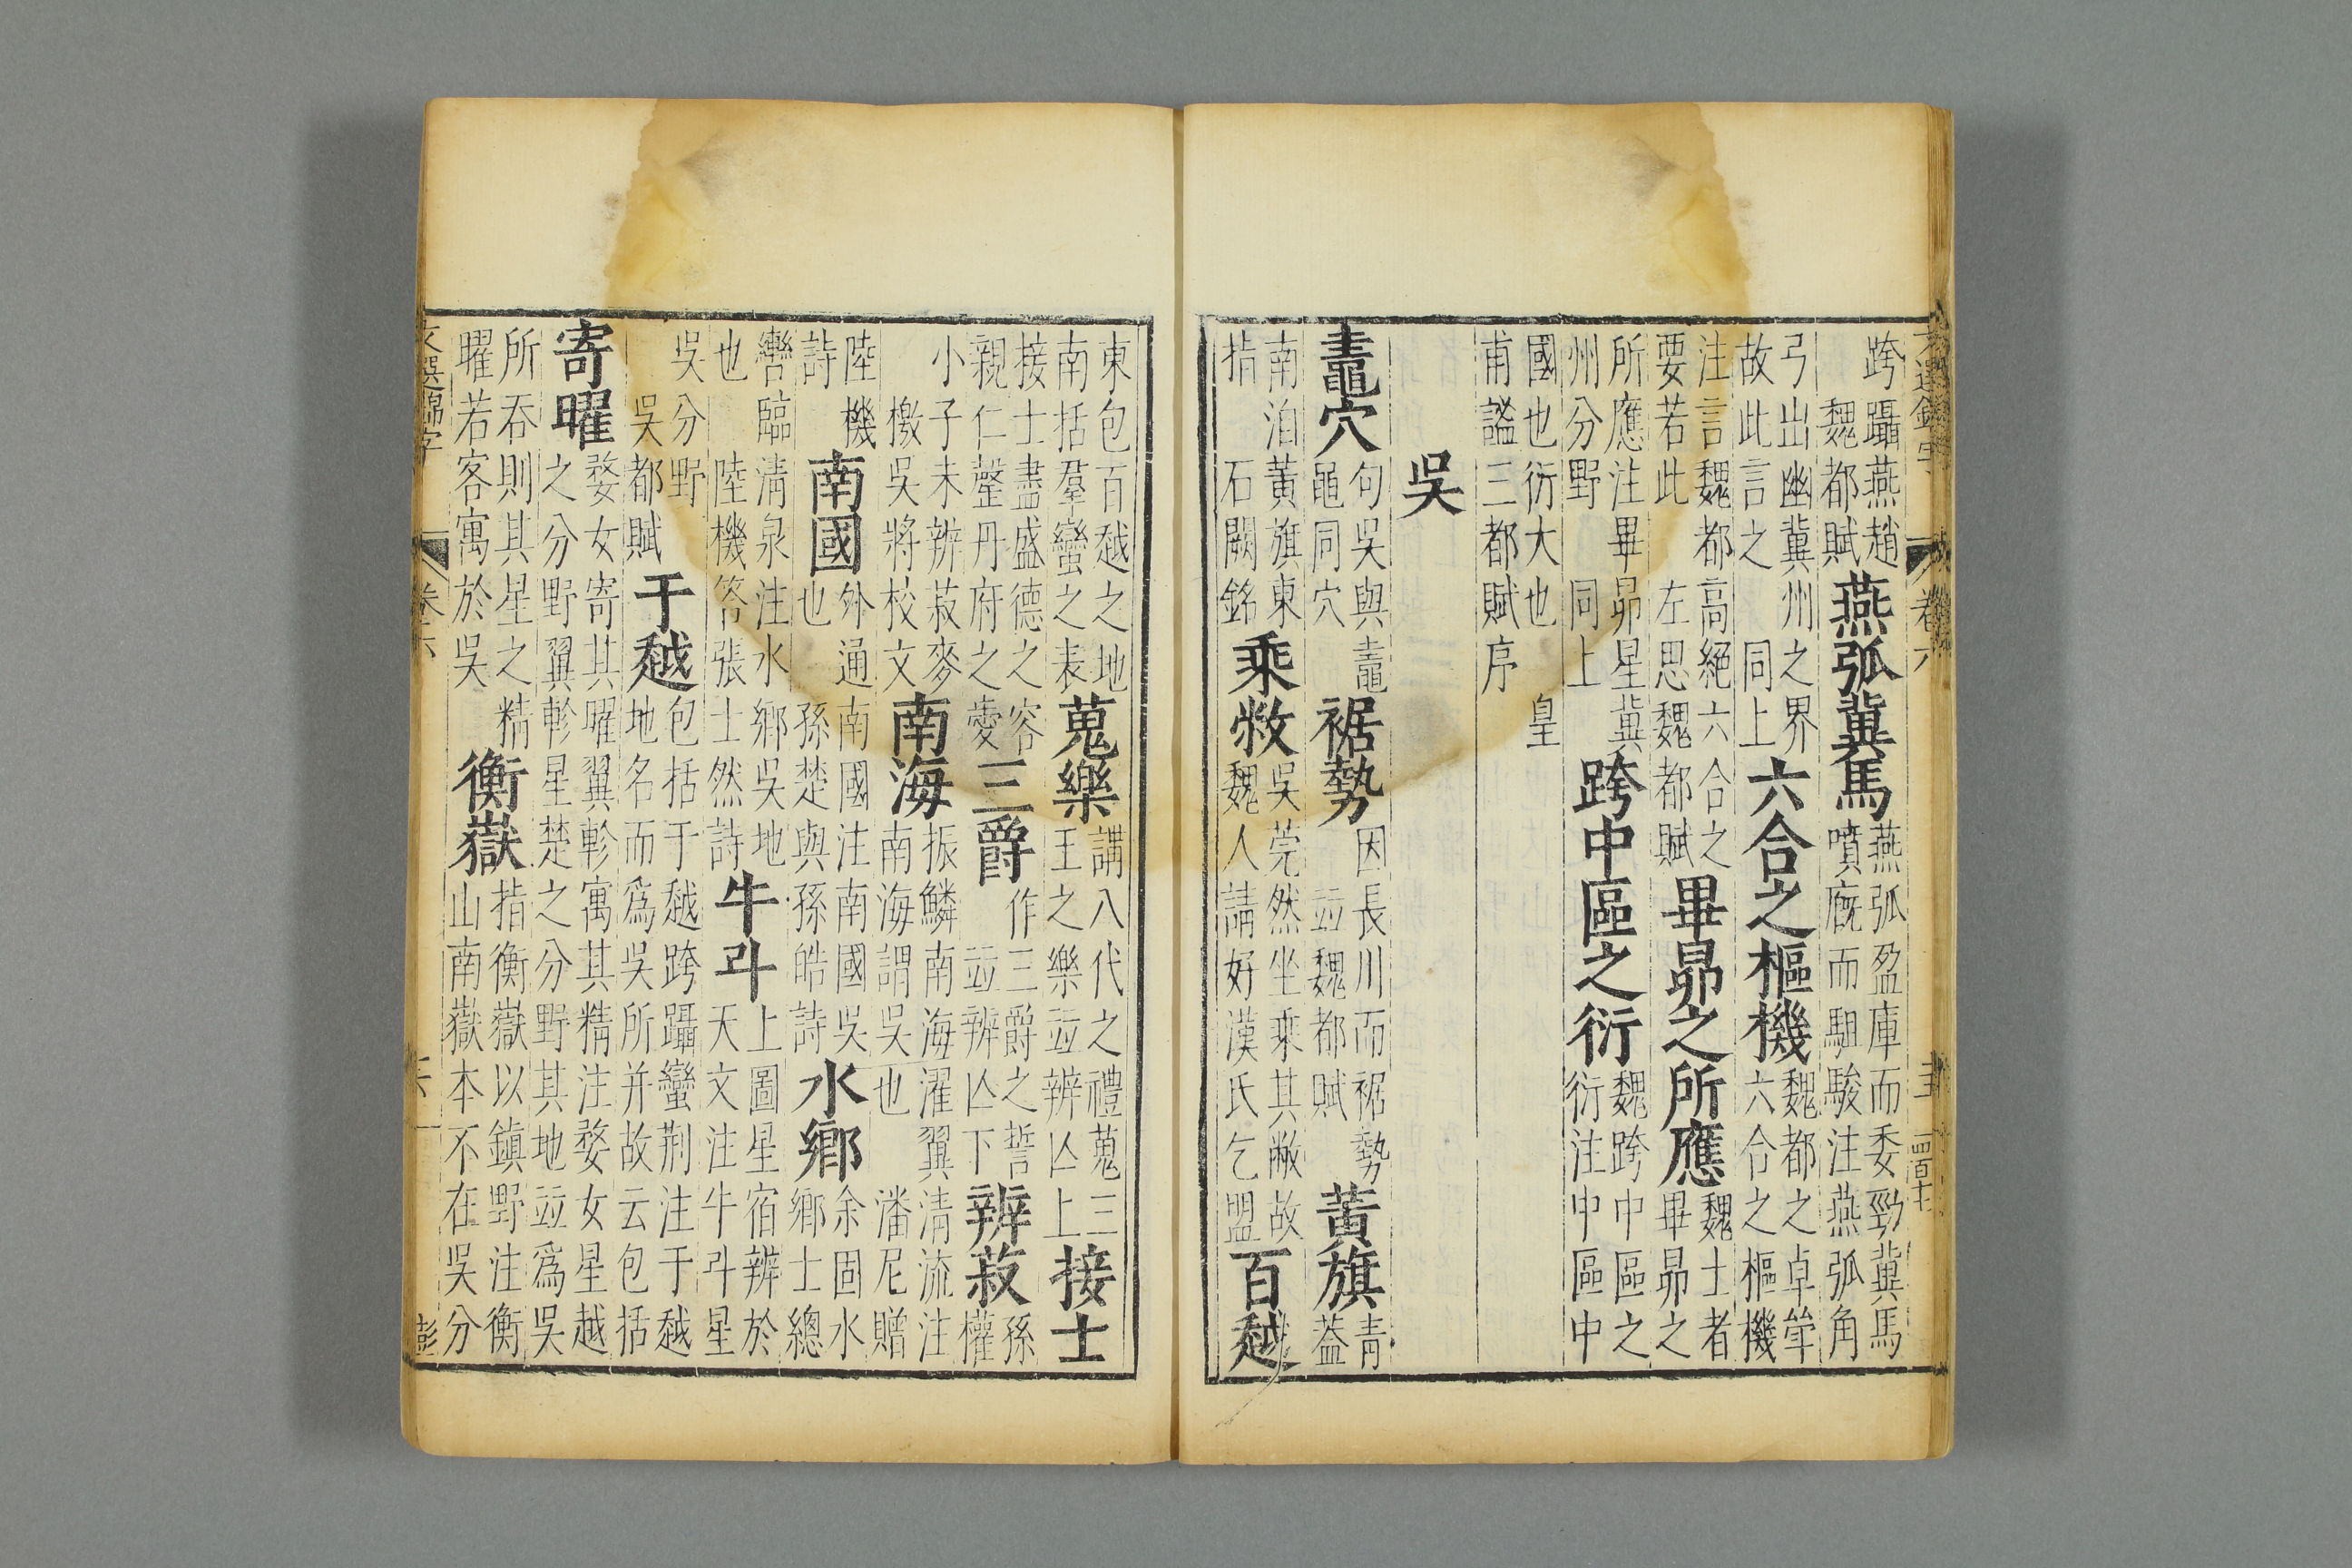 跨躡燕趙
魏都賦
燕弧冀馬
燕弧盈庫而委勁冀馬
噴廐而駔駿注燕弧角
弓出幽冀州之界
故此言之 同上
六合之樞機
魏都之卓犖
六合之樞機
注言魏都高絕六合之
要若此 左思魏都賦
畢昴之所應
魏士者
畢昴之
所應注畢昴星冀
州分野 同上
跨中區之衍
魏跨中區之
衍注中區中
國也衍大也 皇
甫謐三都賦序
吳
鼃穴
句吳與鼃
黽同穴
裾勢
因長川而裾勢
竝魏都賦
黃旗
青
葢
南泊黃旗東
指 石闕銘
乘敝
吳莞然坐乘其敝故
魏人請好漢氏乞盟
百越
東包百越之地
南括羣蠻之表
蒐樂
講八代之禮蒐三
王之樂竝辨亡上
接士
接士盡盛德之容
親仁罄丹府之愛
三爵
作三爵之誓
竝辨亡下
辨菽
孫
權
小子未辨菽麥
檄吳將校文
南海
振鱗南海濯翼清流注
南海謂吳也 潘尼贈
陸機
詩
南國
外通南國注南國吳
也 孫楚與孫皓詩
水鄉
余固水
鄉士總
轡臨清泉注水鄉吳地
也 陸機答張士然詩
牛斗
上圖星宿辨於
天文注牛斗星
吳分野
吳都賦
于越
包括于越跨躡蠻荆注于越
地名而爲吳所并故云包括
寄曜
婺女寄其曜翼軫寓其精注婺女星越
之分野翼軫星楚之分野其地竝爲吳
所吞則其星之精
曜若客寓於吳
衡嶽
指衡嶽以鎮野注衡
山南嶽本不在吳分
文選錦字 卷六